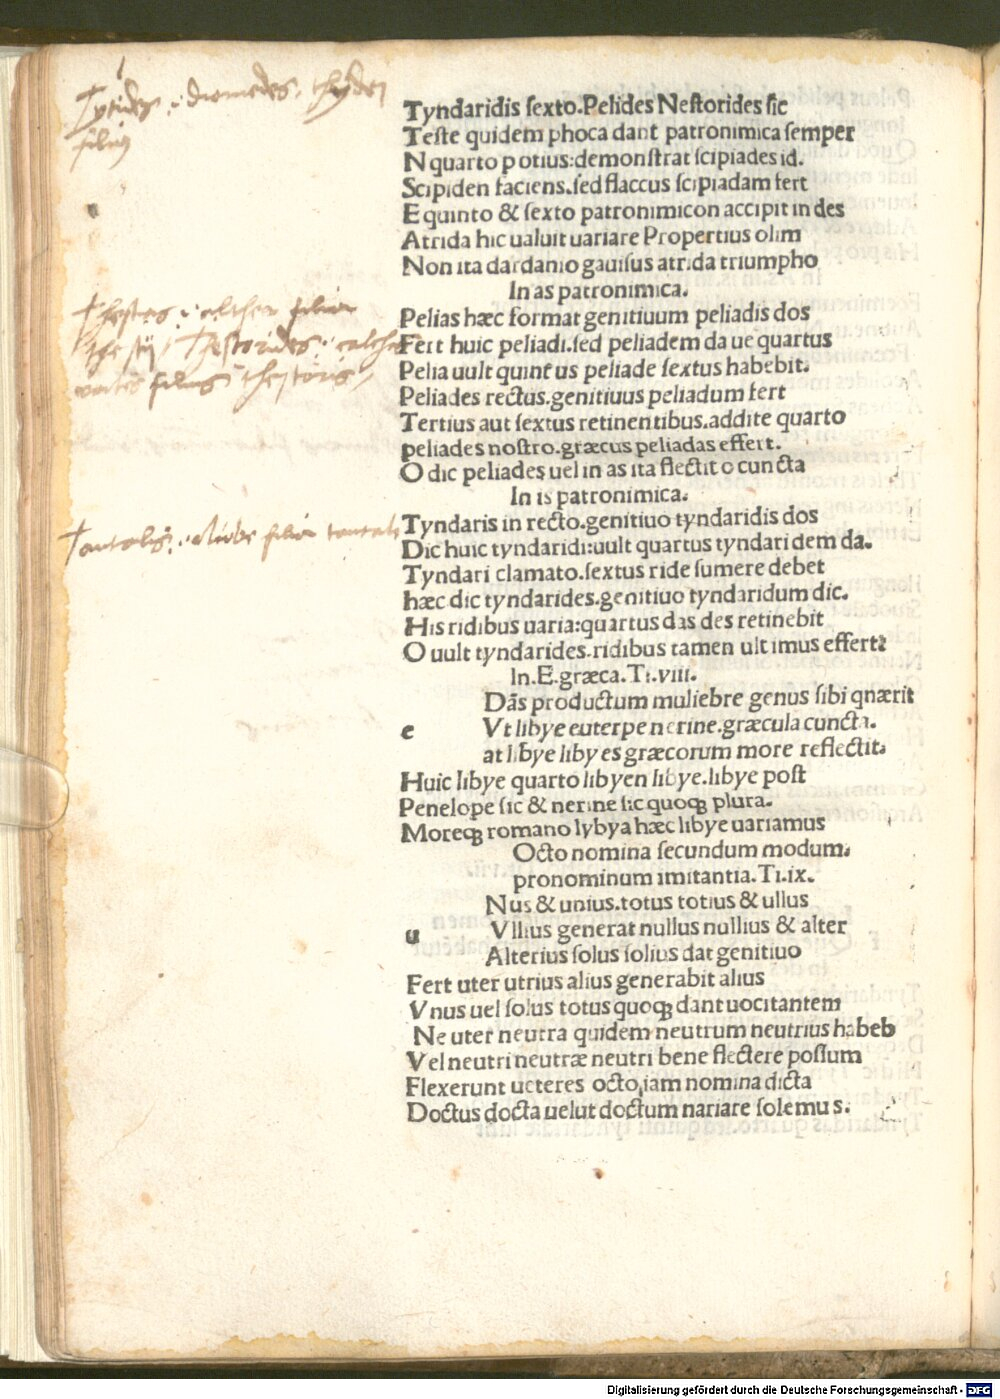 Tytides .i. diomedes. thydei
filius
Tyndaridis ſexto.Pelides Neſtorides ſic
Teſte quidem phoca dant patronimica ſemper
N quarto potius:demonſtrat ſcipiades id.
Scipiden faciens.ſed flaccus ſcipiadam fert
E quinto & ſexto patronimicon accipit in des
Atrida hic ualuit uariare Propertius olim
Non ita dardanio gauiſus atrida triumpho
In as patronimica.
Pelias hæc format genitiuum peliadis dos
Fert huic peliadi.ſed peliadem da ue quartus
Pelia uult quintus peliade ſextus habebit.
Peliades rectus.genitiuus peliadum fert
Tertius aut ſextus retinentibus.addite quarto
peliades noſtro.græcus peliadas effert.
O dic peliades uel in as ita flectit o cuncta
In is patronimica.
theſtÿ / Theſtorides .i. calchas
uates filius theſtoris /
Tantalis .i. Niobe filia tantali
Tyndaris in recto.genitiuo tyndaridis dos
Dic huic tyndaridi:uult quartus tyndaridem da.
Tyndari clamato.ſextus ride ſumere debet
hæc dic tyndarides.genitiuo tyndaridum dic.
His ridibus uaria:quartus das des retinebit
O uult tyndarides.ridibus tamen ultimus effert:
In.E.græca.Ti.viii.
Dãs productum muliebre genus ſibi qnærit
e Vt libye euterpe nerine.græcula cuncta.
at libye libyes græcorum more reflectit.
Huic libye quarto libyen libye.libye poſt
Penelope ſic & nerine ſic quoqꝫ plura.
Moreqꝫ romano lybya hæc libye uariamus
Octo nomina ſecundum modum.
pronominum imitantia.Ti.ix.
Nus & unius.totus totius & ullus
u Vllius generat nullus nullius & alter
Alterius ſolus ſolius dat genitiuo
Fert uter utrius alius generabit alius
Vnus uel ſolus totus quoqꝫ dant uocitantem
Ne uter neutra quidem neutrum neutrius habeb
Vel neutri neutræ neutri bene flectere poſſum
Flexerunt ueteres octo,iam nomina dicta
Doctus docta uelut doctum nariare ſolemus.
Digitalisierung gefördert durch die Deutsche Forschungsgemeinschaft - DFG